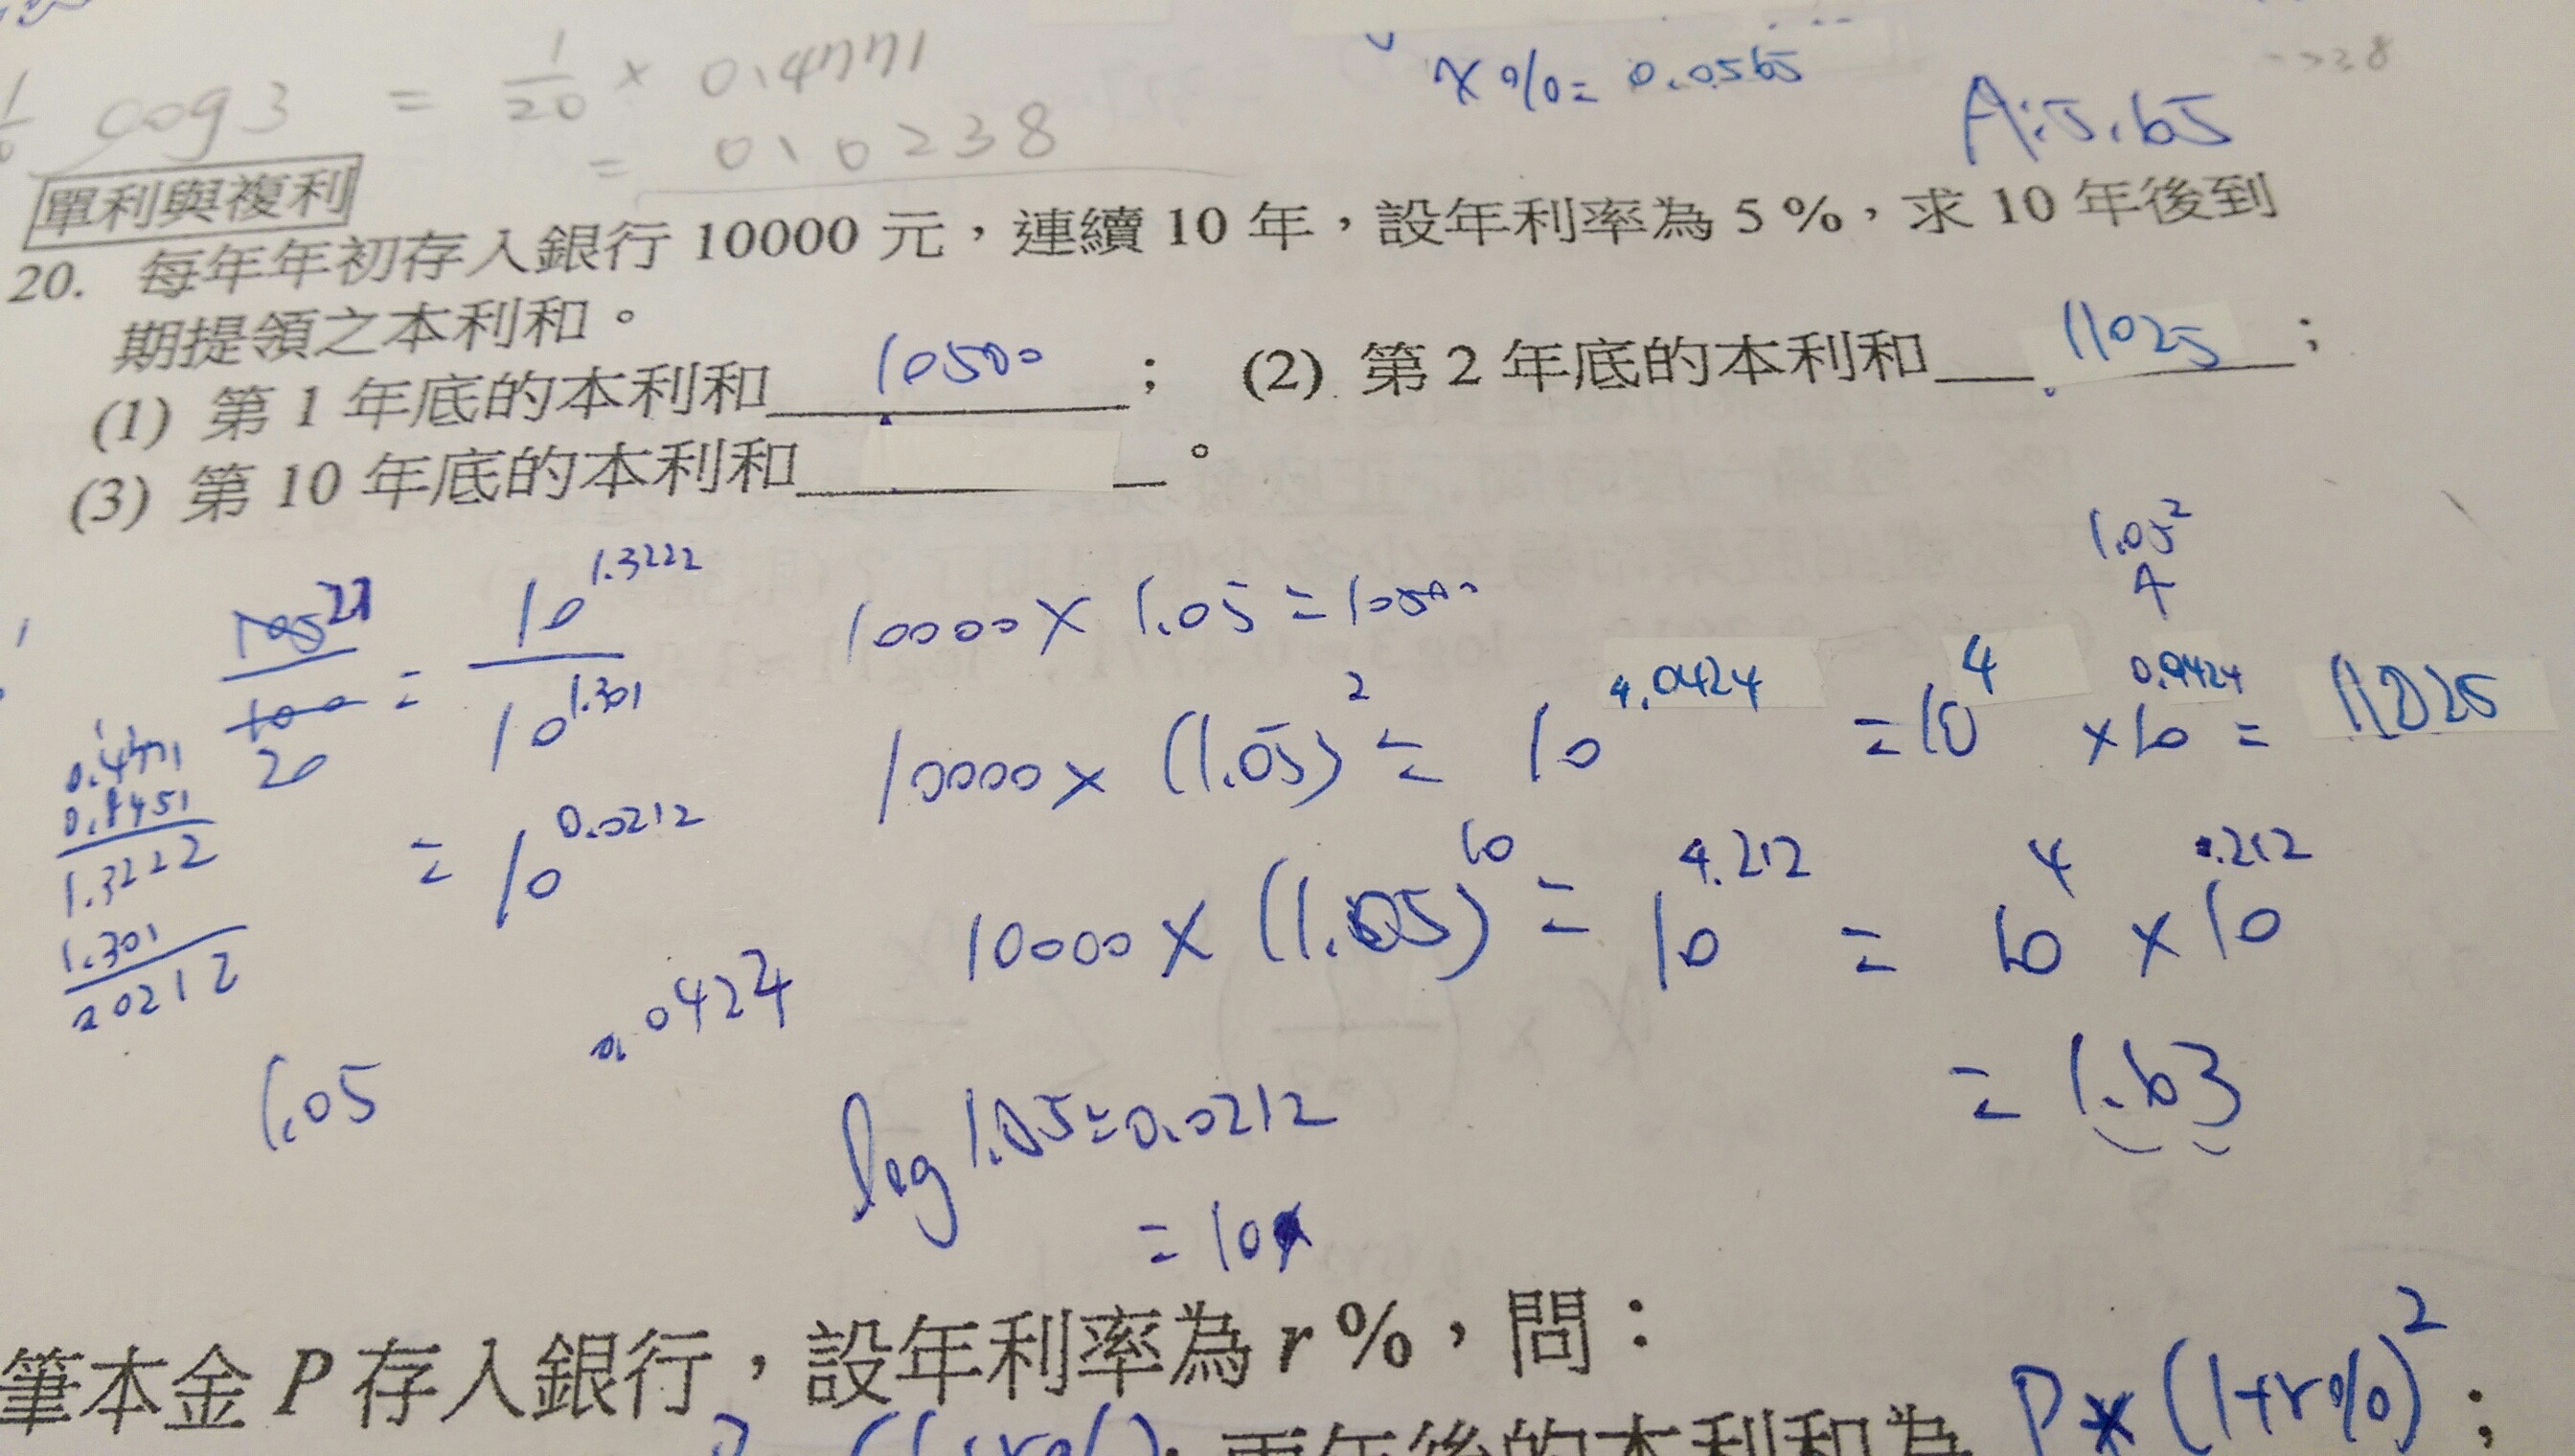 log 3 = 1/20 × 0.4771
= 0.0238
x%= 0.0565
A:5.65
單利與複利
20. 每年年初存入銀行 10000 元，連續 10 年，設年利率為 5 %，求 10 年後到
期提領之本利和。
(1) 第 1 年底的本利和 10500 ； (2) 第 2 年底的本利和 11025 ；
(3) 第 10 年底的本利和 。
105 21 / 100 20 = 10^1.3222 / 10^1.301
= 10^0.0212
0.4771
0.8451
1.3222
1.301
0.0212
1.05
0.0424
10000 × 1.05 = 10500
1.05²
10000 × (1.05)² = 10^4.0424 = 10^4 × 10^0.0424 = 11025
10000 × (1.05)^10 = 10^4.212 = 10^4 × 10^.212
= 1.63
log 1.05 = 0.0212
= 10
筆本金 P 存入銀行，設年利率為 r %，問：
兩年後的本利和為 P×(1+r%)²；